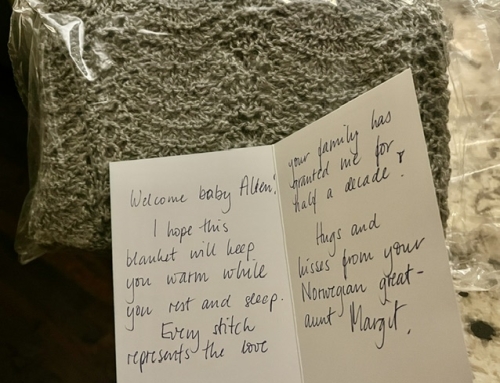 Welcome baby Alden!
I hope this
blanket will keep
you warm while
you rest and sleep.
Every stitch
represents the love
your family has
granted me for
half a decade!
Hugs and
kisses from your
Norwegian great-
aunt Margit.